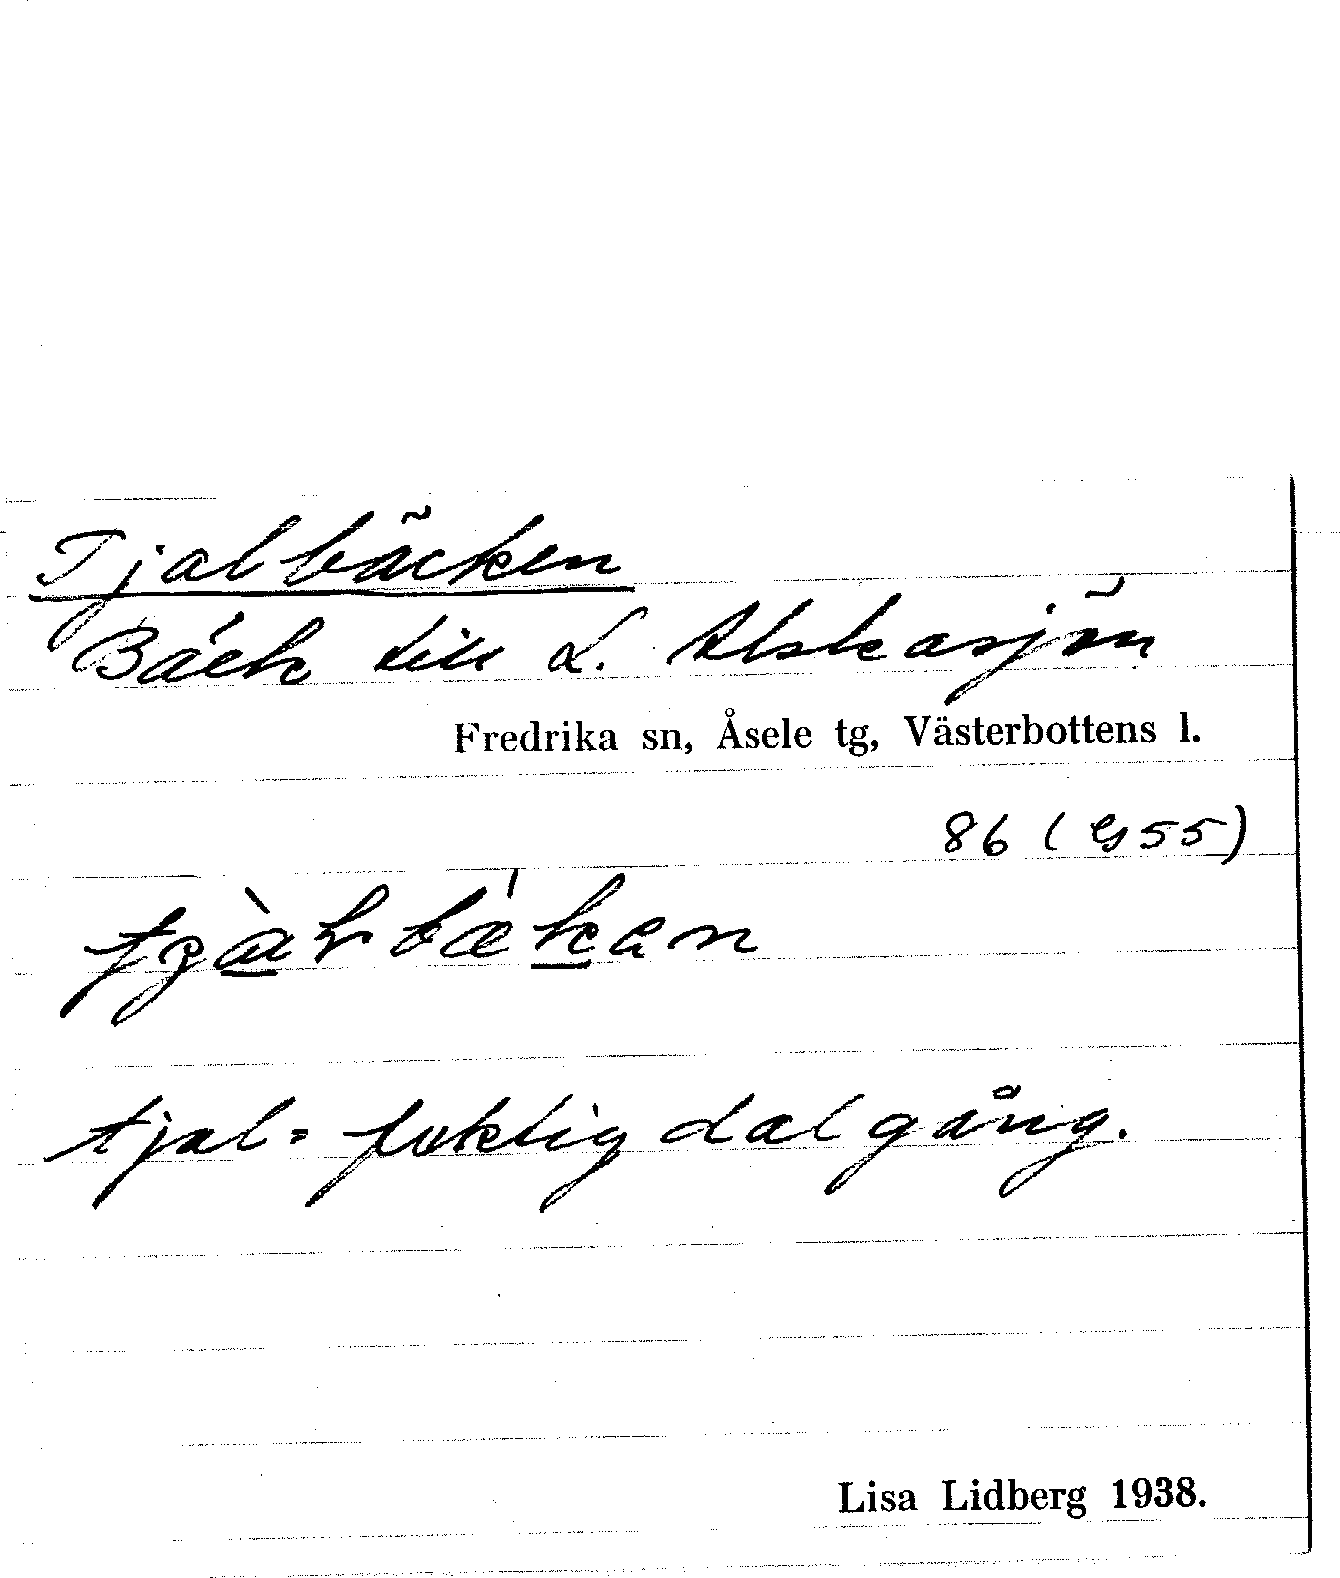 Tjalbäcken
Bäck till L. Alskasjön
Fredrika sn, Åsele tg, Västerbottens l.
86 (G55)
tjal = fuktig dalgång.
Lisa Lidberg 1938.